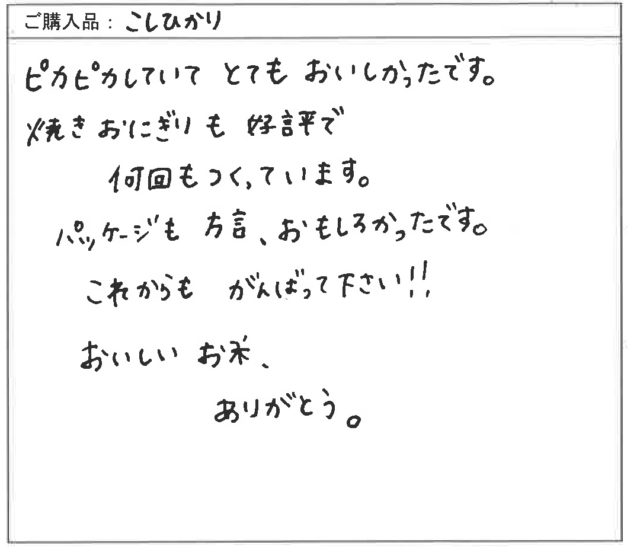 ご購入品：こしひかり
ピカピカしていて とても おいしかったです。
焼きおにぎりも 好評で
何回もつくっています。
パッケージも 方言、おもしろかったです。
これからも がんばって下さい!!
おいしい お米、
ありがとう。